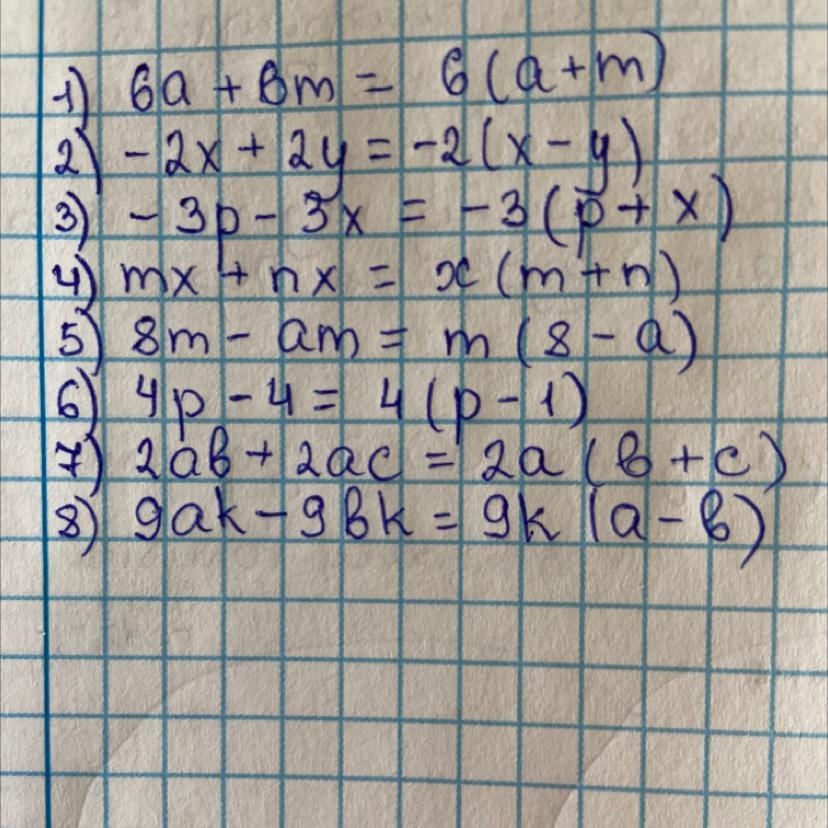 1) 6a + 6m = 6(a+m)
2) -2x + 2y = -2(x-y)
3) -3p - 3x = -3(p+x)
4) mx + nx = x(m+n)
5) 8m - am = m(8-a)
6) 4p - 4 = 4(p-1)
7) 2ab + 2ac = 2a(b+c)
8) 9ak - 9bk = 9k(a-b)